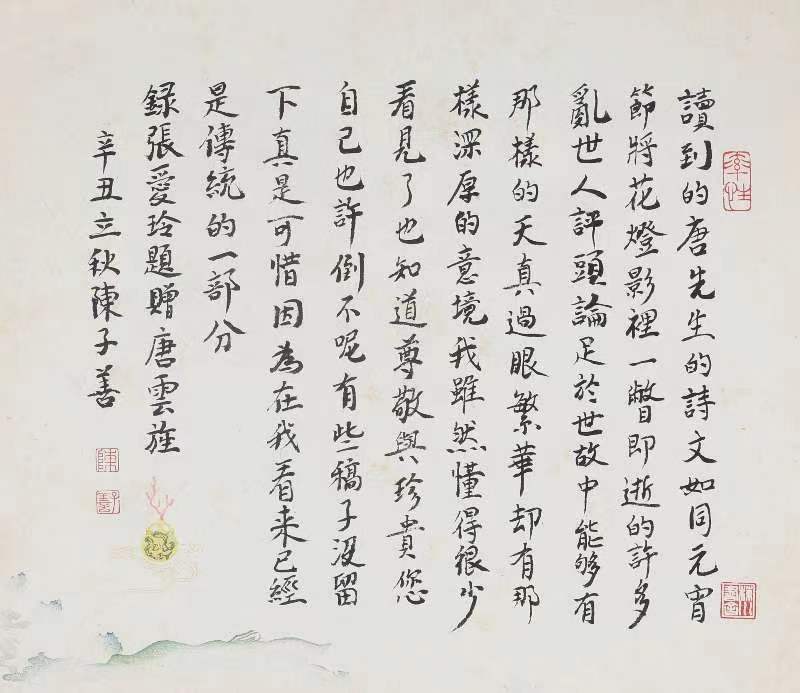 讀到的唐先生的詩文如同元宵
節將花燈影裡一瞥即逝的許多
亂世人評頭論足於世故中能够有
那樣的天真過眼繁華却有那
樣深厚的意境我雖然懂得很少
看見了也知道尊敬與珍貴您
自己也許倒不呢有些稿子没留
下真是可惜因為在我看来已經
是傳統的一部分
録張愛玲題贈唐雲旌
辛丑立秋陳子善
率性
陳
子善